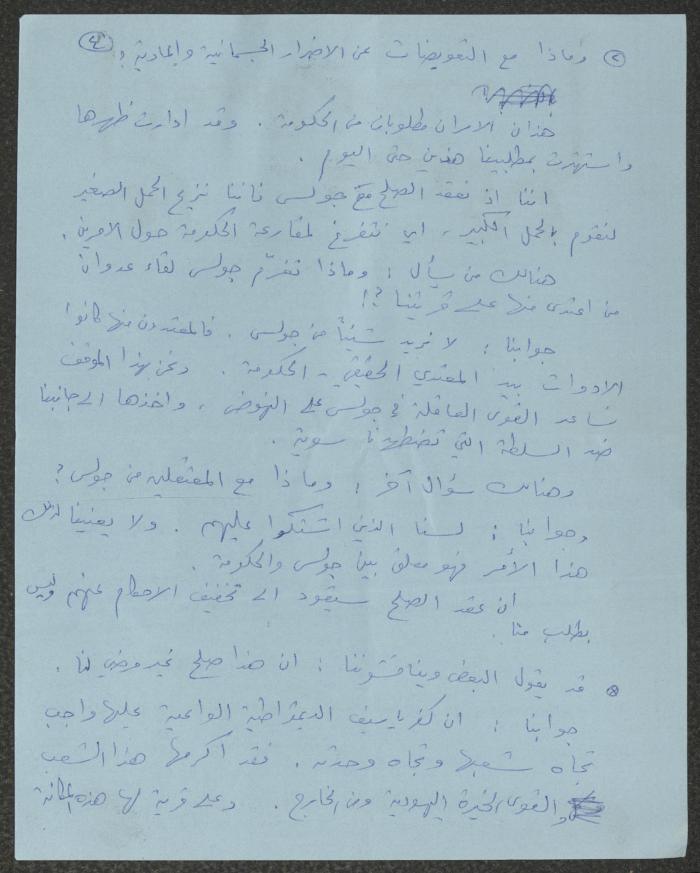 ٤
٢ وماذا مع التعويضات عن الاضرار الجسمانية والمادية ؟
هذان الامران مطلوبان من الحكومة . وقد ادارت ظهرها
واستهترت بمطلبينا هذين حتى اليوم .
اننا اذ نعقد الصلح مع جولس فاننا نزيح الحمل الصغير
لنقوم بالحمل الكبير ، اي نتفرغ لمقارعة الحكومة حول الامرين .
هنالك من يسأل : وماذا تغرّم جولس لقاء عدوان
من اعتدى منها على قريتنا ؟!
جوابنا : لا نريد شيئاً من جولس . فالمعتدون منها كانوا
الادوات بيد المعتدي الحقيقي - الحكومة . ونحن بهذا الموقف
نساعد القوى العاقلة في جولس على النهوض ، واخذها الى جانبنا
ضد السلطة التي تضطهدنا سوية .
وهنالك سؤال آخر : وماذا مع المعتقلين من جولس ؟
وجوابنا : لسنا الذين اشتكوا عليهم . ولا يعنينا لذلك
هذا الأمر فهو معلق بين جولس والحكومة .
ان عقد الصلح سيقود الى تخفيف الاحكام عنهم وليس
بطلب منا .
قد يقول البعض ويناقشوننا : ان هذا صلح غير مرضي لنا .
جوابنا : ان كفرياسيف الديمقراطية الواعية عليها واجب
تجاه شعبها وتجاه وحدته . فقد اكرمها هذا الشعب
والقوى الخيرة اليهودية ومن الخارج . وعلى قرية لها هذه المكانة